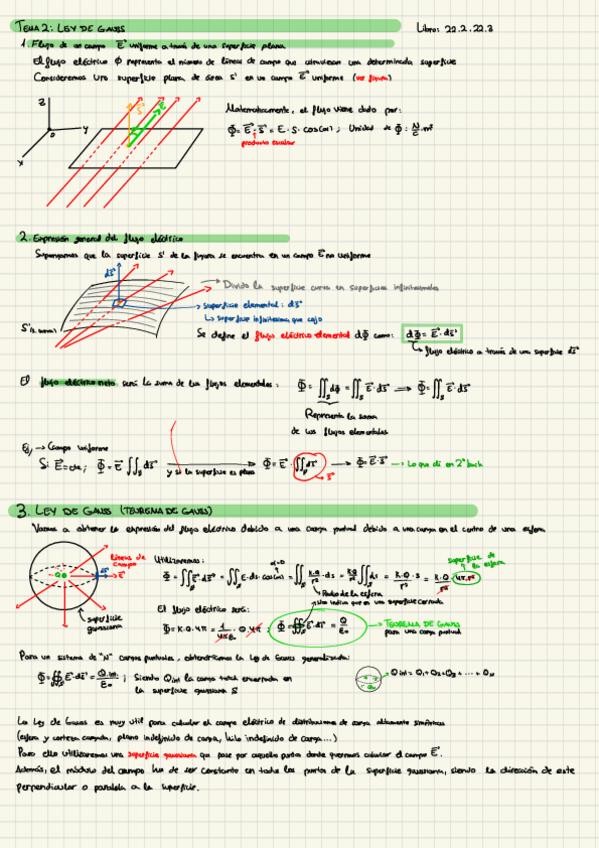 TEMA 2: LEY DE GAUSS
Libro: 22.2, 22.3
1. Flujo de un campo E uniforme a través de una superficie plana
El flujo eléctrico Φ representa el número de líneas de campo que atraviesan una determinada superficie
Consideremos una superficie plana de área S en un campo E uniforme (ver figura)
Z
Y
X
Matemáticamente, el flujo viene dado por:
Φ = E · S = E · S · cos(α) ; Unidad de Φ : N/C · m²
producto escalar
2. Expresión general del flujo eléctrico
Supongamos que la superficie S de la figura se encuentra en un campo E no uniforme
dS
Divido la superficie curva en superficies infinitesimales
superficie elemental: dS
↳ superficie infinitesimal que cojo
Se define el flujo eléctrico elemental dΦ como: dΦ = E · dS
↳ flujo eléctrico a través de una superficie dS
El flujo eléctrico neto será la suma de los flujos elementales: Φ = ∬ dΦ = ∬ E · dS → Φ = ∬ E · dS
Representa la suma
de los flujos elementales
Ej → Campo uniforme
Si E = cte ; Φ = E ∬ dS → y si la superficie es plana Φ = E · ∬ dS → Φ = E · S → Lo que di en 2º bach
3. LEY DE GAUSS (TEOREMA DE GAUSS)
Vamos a obtener la expresión del flujo eléctrico debido a una carga puntual debido a una carga en el centro de una esfera
líneas de campo
superficie gaussiana
Utilizaremos:
superficie de la esfera
α=0
Φ = ∬ E · dS = ∬ E · ds · cos(α) = ∬ K·Q/r² · ds = K·Q/r² ∬ ds = K·Q/r² · S = K·Q/r² · 4π·r²
Radio de la esfera
El flujo eléctrico será:
Φ = K·Q·4π = 1/4πε₀ · Q · 4π ; Φ = ∯ E · dS = Q/ε₀ → TEOREMA DE GAUSS para una carga puntual
Para un sistema de "N" cargas puntuales, obtendríamos la Ley de Gauss generalizada:
Φ = ∯ E · dS = Q int/ε₀ ; Siendo Q int la carga total encerrada en la superficie gaussiana S
Q int = Q₁ + Q₂ + Q₃ + .... + Q N
La Ley de Gauss es muy útil para calcular el campo eléctrico de distribuciones de carga altamente simétricas
(esfera y corteza cargada, plano indefinido de carga, hilo indefinido de carga...)
Para ello utilizaremos una superficie gaussiana que pase por aquellos puntos donde queremos calcular el campo E.
Además, el módulo del campo ha de ser constante en todos los puntos de la superficie gaussiana, siendo la dirección de este
perpendicular o paralela a la superficie.